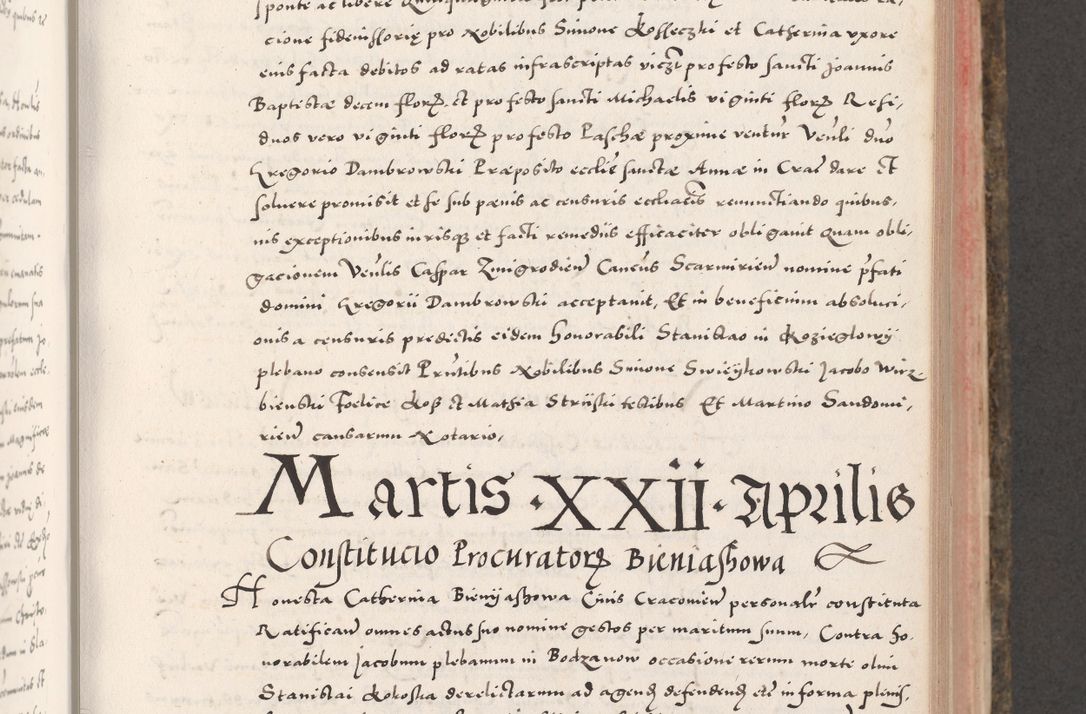 sponte ac libere
cione fideiussorię pro Nobilibus Simone Kosseczki et Catherina uxore
eius facta debitos ad ratas infrascriptas viczt pro festo sancti Joannis
Baptistæ decem florȝ. et pro festo sancti Michaelis viginti florȝ Resi,
duos vero viginti florȝ pro festo Paschæ proxime ventur Venli dno
Gregorio Dambrowski Præposito ecclie sanctæ Annæ in Crac dare et
solvere promisit et se sub pænis ac censuris eccliacis renunctiando quibus,
uis exceptionibus iurisqȝ et facti remediis efficaciter obligavit Quam obli,
gacionem Venlis Caspar Zmigrodien Caneus Scarmirien nomine pfati
domini Gregorii Dambrowski acceptavit, Et in beneficium absoluci,
onis a censuris predictis eidem honorabili Stanislao in Kozieglowÿ
plebano consensit Pruntibus Nobilibus Simone Swieÿkowski Jacobo Wirz,
bienski Foelice Kosz et Mathia Striiski testibus Et Martino Sandomi,
rien causarum Notario,
Martis ·XXII· Aprilis
Constitucio Procuratorȝ Bieniashowa
Honesta Catherina Bieniÿashowa Civis Cracovien personalr constituta
Ratifican omnes actus suo nomine gestos per maritum suum, Contra ho,
norabilem Jacobum plebanum in Bodzanow occasione rerum morte olim
Stanislai Kokoska derelictarum ad agendȝ defendendȝ etc in forma pleniss,